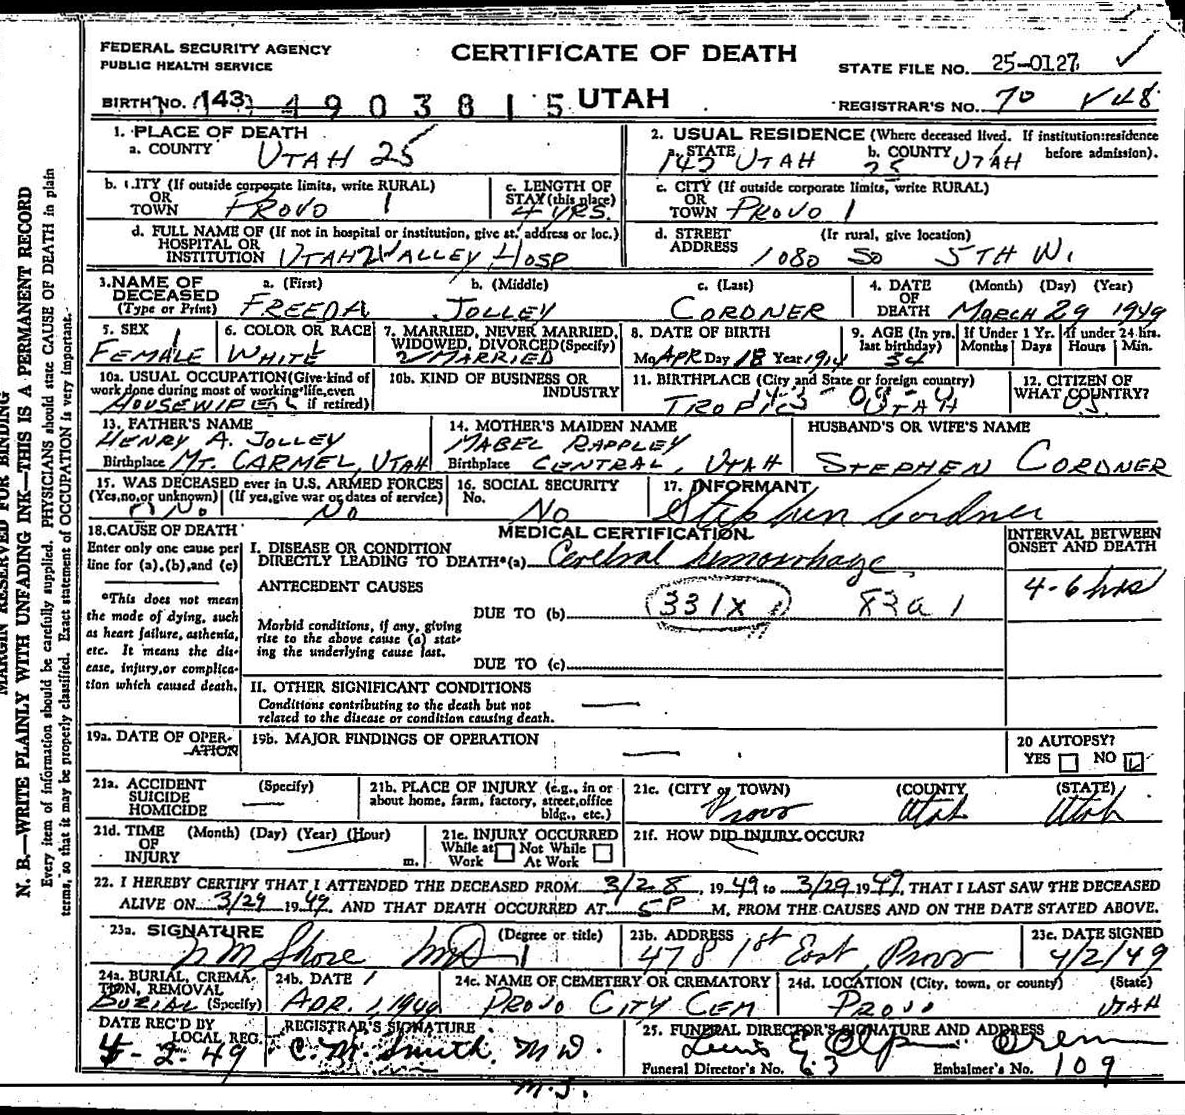 FEDERAL SECURITY AGENCY
PUBLIC HEALTH SERVICE
CERTIFICATE OF DEATH
STATE FILE NO. 25-0127
BIRTH NO. (143) 4903815 UTAH
REGISTRAR'S NO. 70 V48
1. PLACE OF DEATH
a. COUNTY UTAH 25
2. USUAL RESIDENCE (Where deceased lived. If institution:residence before admission).
a. STATE 143 UTAH b. COUNTY 25 UTAH
b. CITY (If outside corporate limits, write RURAL)
OR TOWN PROVO 1
c. LENGTH OF STAY (this place) 4 YRS.
c. CITY (If outside corporate limits, write RURAL)
OR TOWN PROVO 1
d. FULL NAME OF (If not in hospital or institution, give st. address or loc.)
HOSPITAL OR INSTITUTION UTAH VALLEY HOSP
d. STREET ADDRESS (If rural, give location)
1080 SO 5TH W.
3. NAME OF DECEASED (Type or Print)
a. (First) FREEDA
b. (Middle) JOLLEY
c. (Last) CORDNER
4. DATE OF DEATH (Month) (Day) (Year)
MARCH 29 1949
5. SEX FEMALE 1
6. COLOR OR RACE WHITE 1
7. MARRIED, NEVER MARRIED, WIDOWED, DIVORCED (Specify)
2 MARRIED
8. DATE OF BIRTH
Mo. APR Day 18 Year 1914
9. AGE (In yrs. last birthday) 34
If Under 1 Yr. Months Days
If under 24 hrs. Hours Min.
10a. USUAL OCCUPATION (Give kind of work done during most of working life, even if retired)
HOUSEWIFE
10b. KIND OF BUSINESS OR INDUSTRY
11. BIRTHPLACE (City and State or foreign country)
TROPIC UTAH
12. CITIZEN OF WHAT COUNTRY?
U.S
13. FATHER'S NAME
HENRY A. JOLLEY
Birthplace MT. CARMEL, UTAH
14. MOTHER'S MAIDEN NAME
MABEL RAPPLEY
Birthplace CENTRAL, UTAH
HUSBAND'S OR WIFE'S NAME
STEPHEN CORDNER
15. WAS DECEASED ever in U.S. ARMED FORCES
(Yes, no, or unknown) (If yes, give war or dates of service)
0 No No
16. SOCIAL SECURITY No.
No
17. INFORMANT
Stephen Cordner
18. CAUSE OF DEATH
Enter only one cause per line for (a), (b), and (c)
*This does not mean the mode of dying, such as heart failure, asthenia, etc. It means the disease, injury, or complication which caused death.
MEDICAL CERTIFICATION
I. DISEASE OR CONDITION
DIRECTLY LEADING TO DEATH*(a) Cerebral hemorrhage
INTERVAL BETWEEN ONSET AND DEATH
4-6 hrs
ANTECEDENT CAUSES
DUE TO (b) 331X 83a1
Morbid conditions, if any, giving rise to the above cause (a) stating the underlying cause last.
DUE TO (c)
II. OTHER SIGNIFICANT CONDITIONS
Conditions contributing to the death but not related to the disease or condition causing death.
19a. DATE OF OPERATION
19b. MAJOR FINDINGS OF OPERATION
20 AUTOPSY?
YES NO
21a. ACCIDENT SUICIDE HOMICIDE (Specify)
21b. PLACE OF INJURY (e.g., in or about home, farm, factory, street, office bldg., etc.)
21c. (CITY or TOWN) (COUNTY (STATE)
Provo Utah Utah
21d. TIME OF INJURY (Month) (Day) (Year) (Hour) m.
21e. INJURY OCCURRED
While at Work Not While At Work
21f. HOW DID INJURY OCCUR?
22. I HEREBY CERTIFY THAT I ATTENDED THE DECEASED FROM 3/28, 1949 to 3/29 1949, THAT I LAST SAW THE DECEASED
ALIVE ON 3/29 1949, AND THAT DEATH OCCURRED AT 5P M. FROM THE CAUSES AND ON THE DATE STATED ABOVE.
23a. SIGNATURE (Degree or title)
Shore MD
23b. ADDRESS
478 1st East, Provo
23c. DATE SIGNED
4/2/49
24a. BURIAL, CREMATION, REMOVAL (Specify)
BURIAL
24b. DATE
APR. 1, 1949
24c. NAME OF CEMETERY OR CREMATORY
PROVO CITY CEM
24d. LOCATION (City, town, or county) (State)
PROVO UTAH
DATE REC'D BY LOCAL REG.
4-2-49
REGISTRAR'S SIGNATURE
C. M. Smith, M.D.
M.J.
25. FUNERAL DIRECTOR'S SIGNATURE AND ADDRESS
Orem
Funeral Director's No. 63 Embalmer's No. 109
MARGIN RESERVED FOR BINDING
N. B.—WRITE PLAINLY WITH UNFADING INK—THIS IS A PERMANENT RECORD
Every item of information should be carefully supplied. PHYSICIANS should state CAUSE OF DEATH in plain
terms, so that it may be properly classified. Exact statement of OCCUPATION is very important.